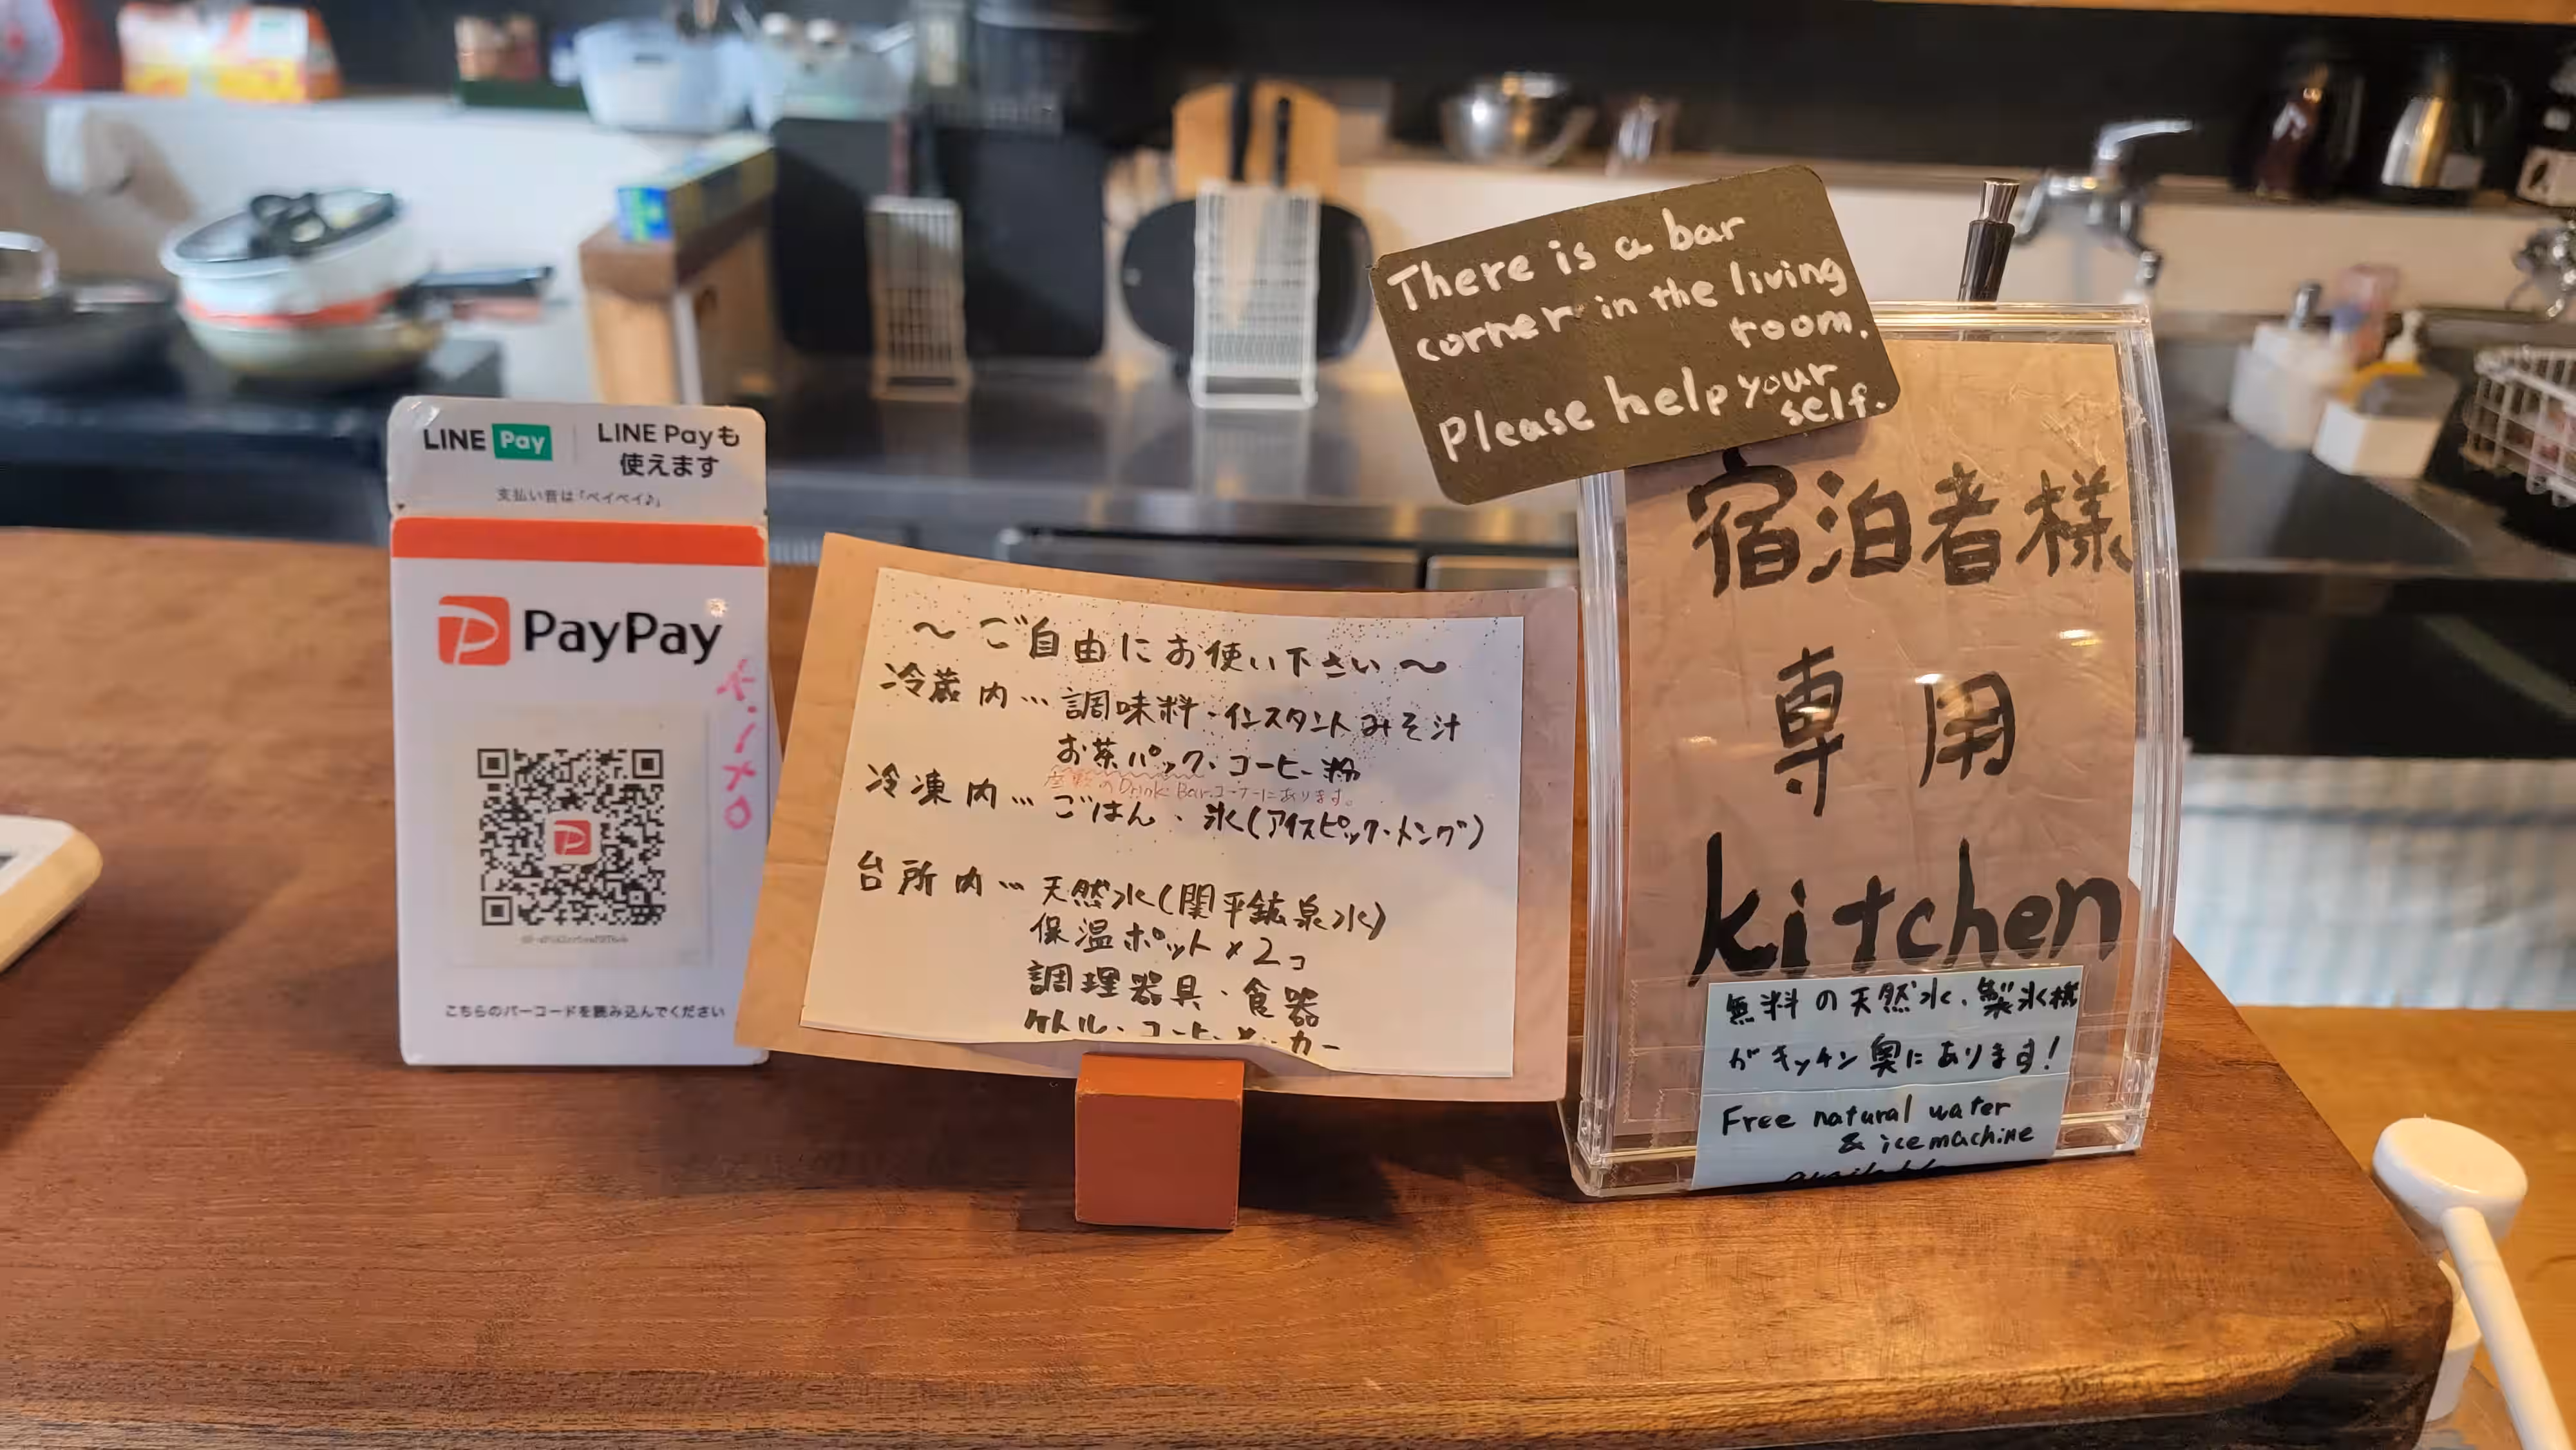 LINE Pay
LINE Payも
使えます
支払い音は「ペイペイ♪」
PayPay
こちらのバーコードを読み込んでください
～ご自由にお使い下さい～
冷蔵内…調味料・インスタントみそ汁
お茶パック・コーヒー粉
座敷のDrink Barコーナーにあります。
冷凍内…ごはん・氷(アイスピック・トング)
台所内…天然水(関平鉱泉水)
保温ポット×2コ
調理器具・食器
ケトル・コーヒーメーカー
There is a bar
corner in the living
room.
Please help your
self.
宿泊者様
専用
kitchen
無料の天然水、製氷機
がキッチン奥にあります!
Free natural water
& icemachine
available